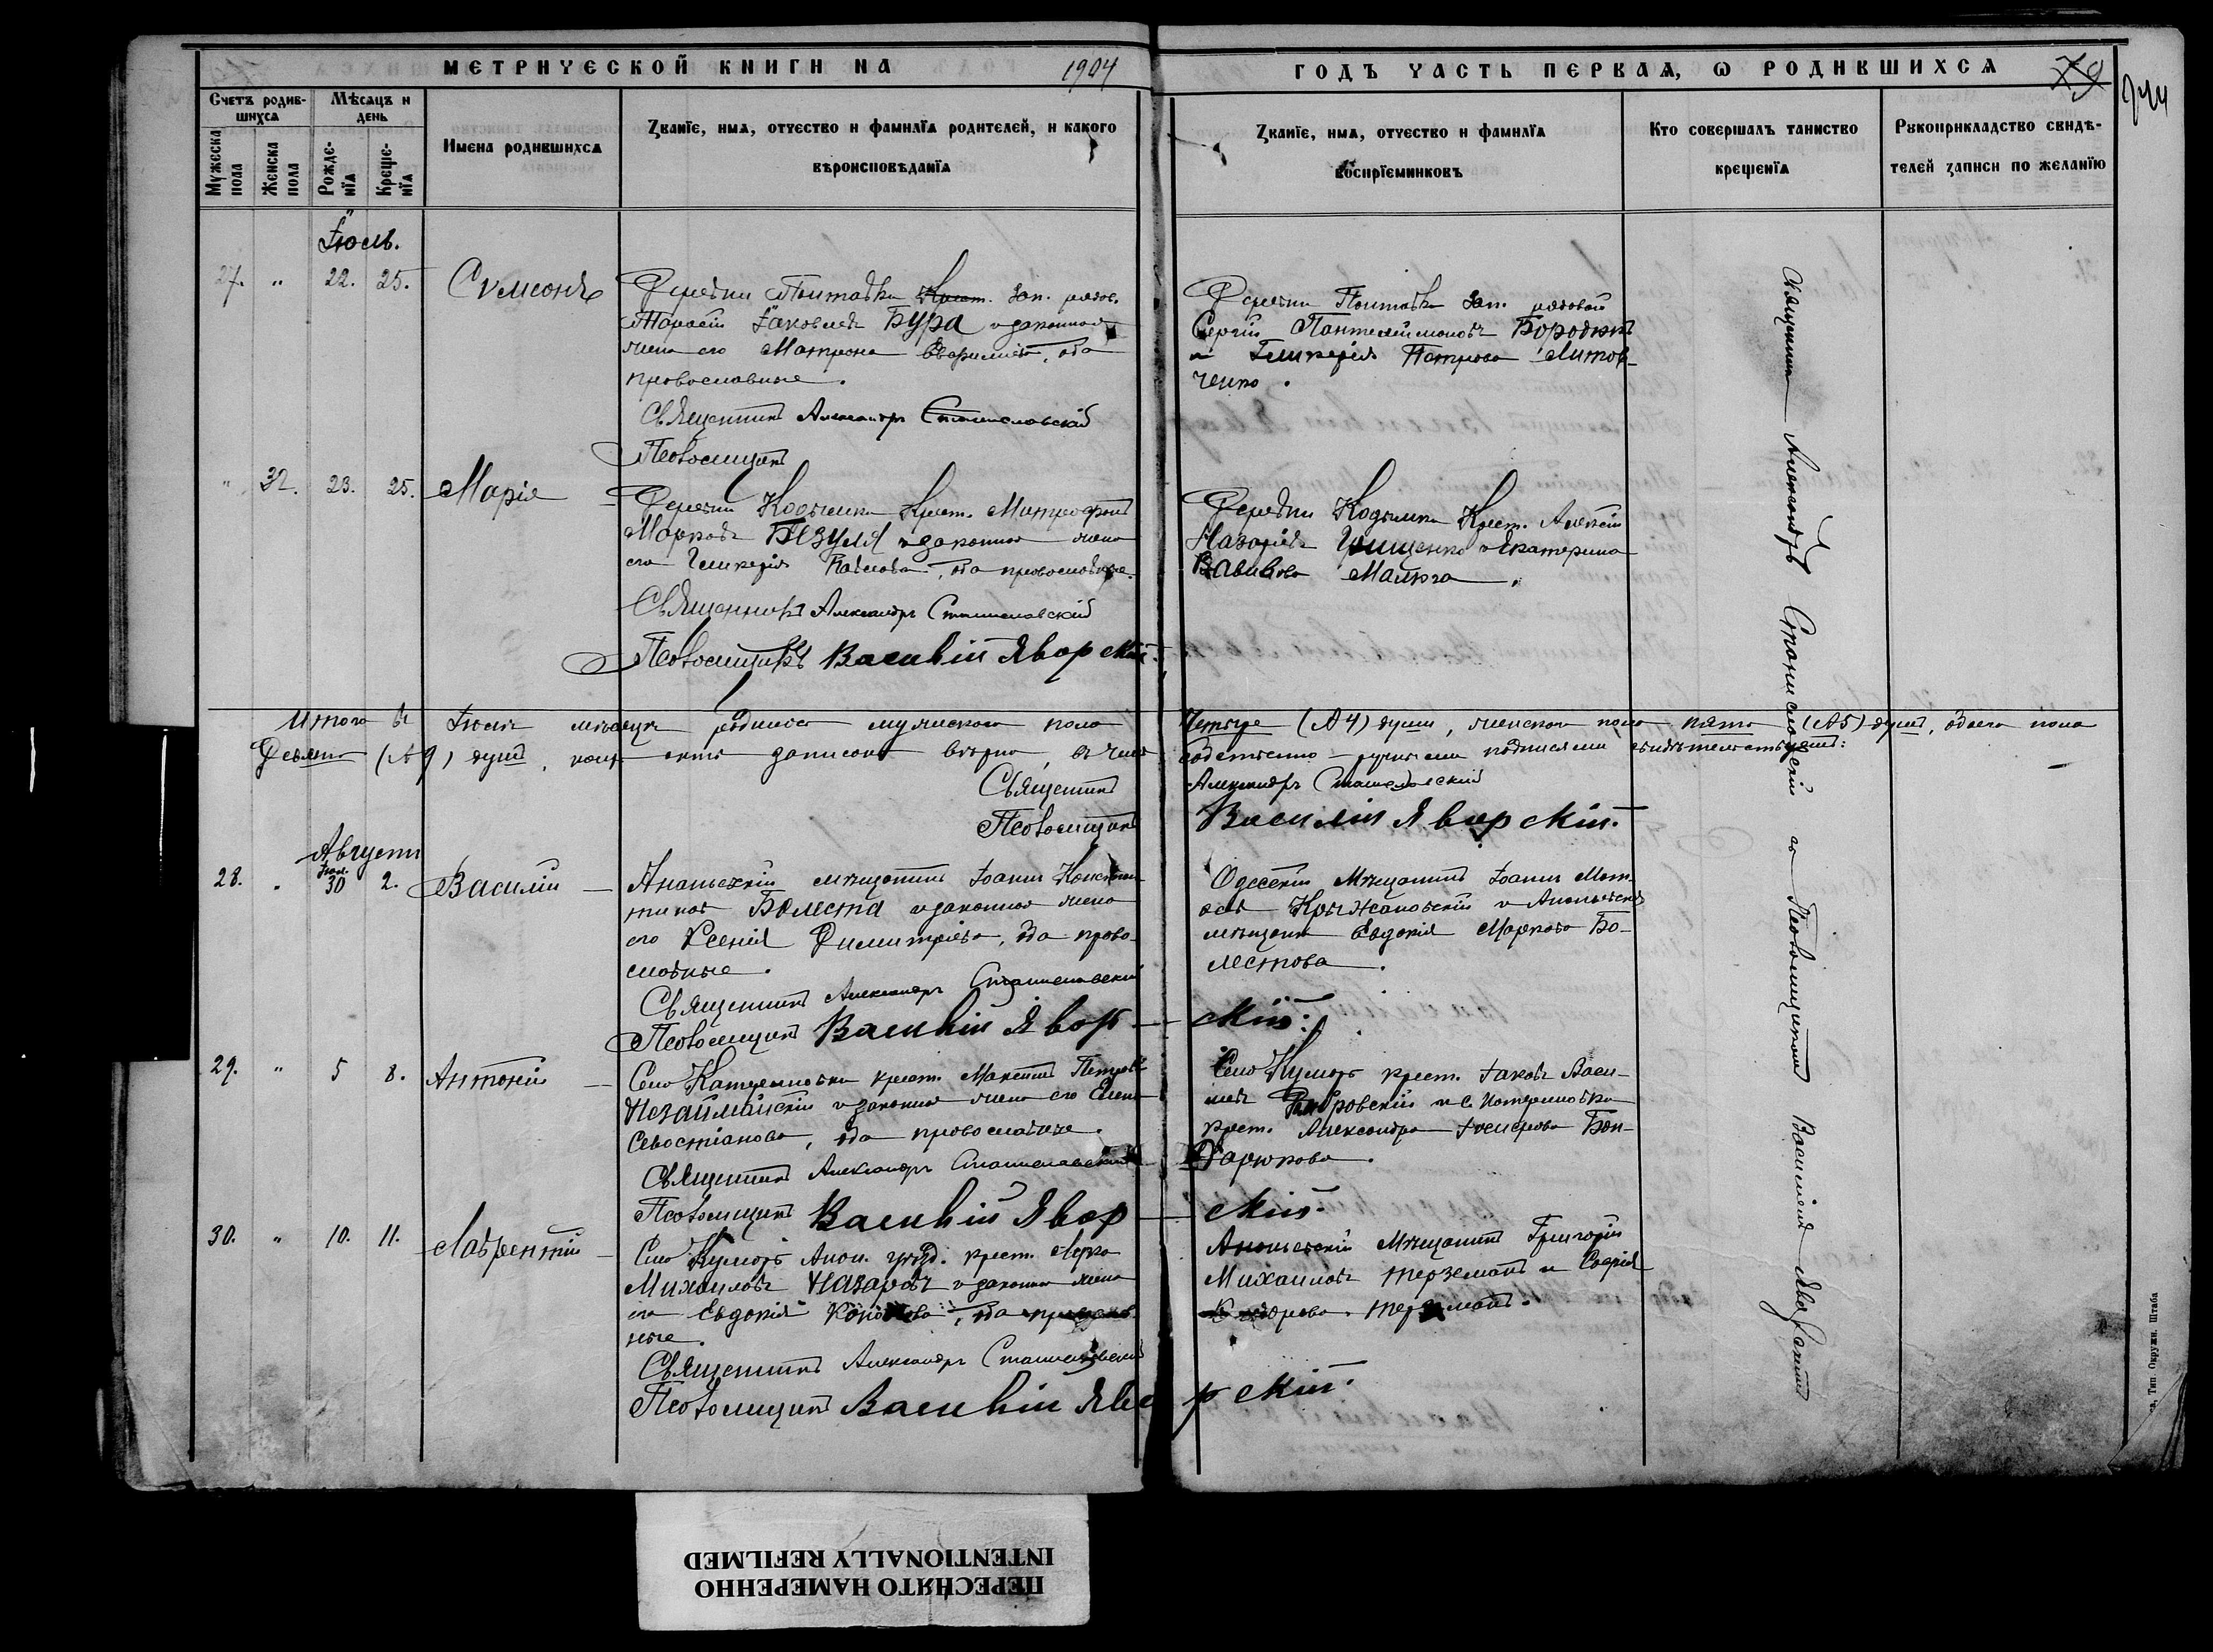 МЕТРИЧЕСКОЙ КНИГИ НА 1904
ГОДЪ ЧАСТЬ ПЕРВАЯ, Ѡ РОДИВШИХСЯ
79
Счетъ родив-
шихся
Мѣсяцъ и
день
Мужеска
пола
Женска
пола
Рожде-
нїя
Креще-
нїя
Имена родившихся
Званїе, имя, отчество и фамилїя родителей, и какого
вѣроисповѣданїя
Званїе, имя, отчество и фамилїя
воспрїемниковъ
Кто совершалъ таинство
крещенїя
Рукоприкладство свидѣ-
телей записи по желанїю
Іюль.
27. " 22. 25. Сѵмеонъ
Деревни Крест. Зап. рядов.
Тарасій Іаковлевъ Бура и законная
жена его Матрона, оба
православные.
Священникъ Александръ Станиславскій
Псаломщикъ
Деревни Зап. рядовой
Сергій Пантелеимоновъ Бородинъ
и Гликерія Петрова Литов-
ченко.
" 32. 23. 25. Марія
Деревни Кодымки Крест. Митрофанъ
Марковъ Безуля и законная жена
его Гликерія Павлова, оба православные.
Священникъ Александръ Станиславскій
Псаломщикъ Василій Яворскій.
Деревни Кодымки Крест. Алексій
Назаріевъ Грищенко и Екатерина
Вавилова Малюга.
Итого въ Іюлѣ мѣсяцѣ родилось мужескаго пола
Четыре (№ 4) души, женскаго пола пять (№ 5) душъ, обоего пола
Девять (№ 9) душъ, записано вѣрно, въ чемъ
собственно-ручными подписями свидѣтельствуемъ:
Священникъ Александръ Станиславскій
Псаломщикъ Василій Яворскій.
Августъ
28. " Іюл. 30 2. Василій
Ананьевскій мѣщанинъ Іоаннъ Констан-
тиновъ Болеста и законная жена
его Ксенія Димитріева, оба право-
славные.
Священникъ Александръ Станиславскій
Псаломщикъ Василій Яворскій.
Одесскій Мѣщанинъ Іоаннъ
Крыжановскій и Ананьевская
мѣщанка Евдокія Маркова Бо-
лестова.
29. " 5 8. Антоній
Село Катериновки крест. Максимъ Петровъ
Незайманскій и законная жена его Елена
Севостіанова, оба православные.
Священникъ Александръ Станиславскій
Псаломщикъ Василій Яворскій.
Село Кумары крест. Іаковъ Васи-
лiевъ и с. Катериновки
крест. Александра Бон-
дарюкова.
30. " 10. 11. Лаврентій
Село Кумары Анан. уѣзд. крест. Марко
Михаиловъ Назаровъ и законная жена
его Евдокія, оба православ-
ные.
Священникъ Александръ Станиславскій
Псаломщикъ Василій Яворскій.
Ананьевскій Мѣщанинъ Григорій
Михаиловъ Терземанъ и Софія
Терземанъ.
Священникъ Александръ Станиславскій съ Псаломщикомъ Василіемъ Яворскимъ
Тип. Окружн. Штаба
ПЕРЕСНЯТО НАМЕРЕННО
INTENTIONALLY REFILMED